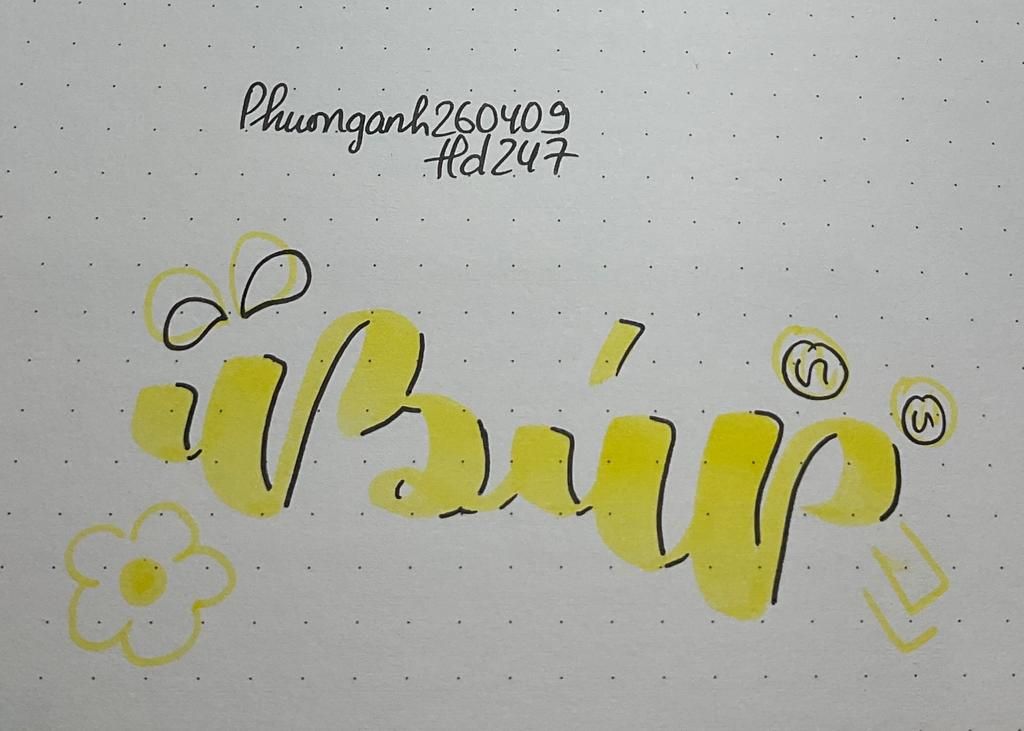 Phuonganh260409
Hd247
Búp